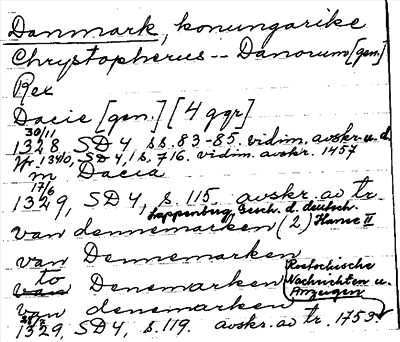 Danmark, konungarike
Chrystopherus -- Danorum [gen]
Rex
Dacie [gen] [4 ggr]
30/11
1328, SD 4, ss. 83-85. vidim. avskr. u. d.
Jfr. 1340, SD 4, 1 s. 716. vidim. avskr. 1457
m Dacia
17/6
1329, SD 4, s. 115. avskr. av tr.
Lappenburg, Gesch. d. deutsch.
van dennemarken (2) Hanse II
van Dennemarken
to Denemarken
Rostockische Nachrichten u. Anzeigen
van denemarken
1329, SD 4, s. 119. avskr. av tr. 1753